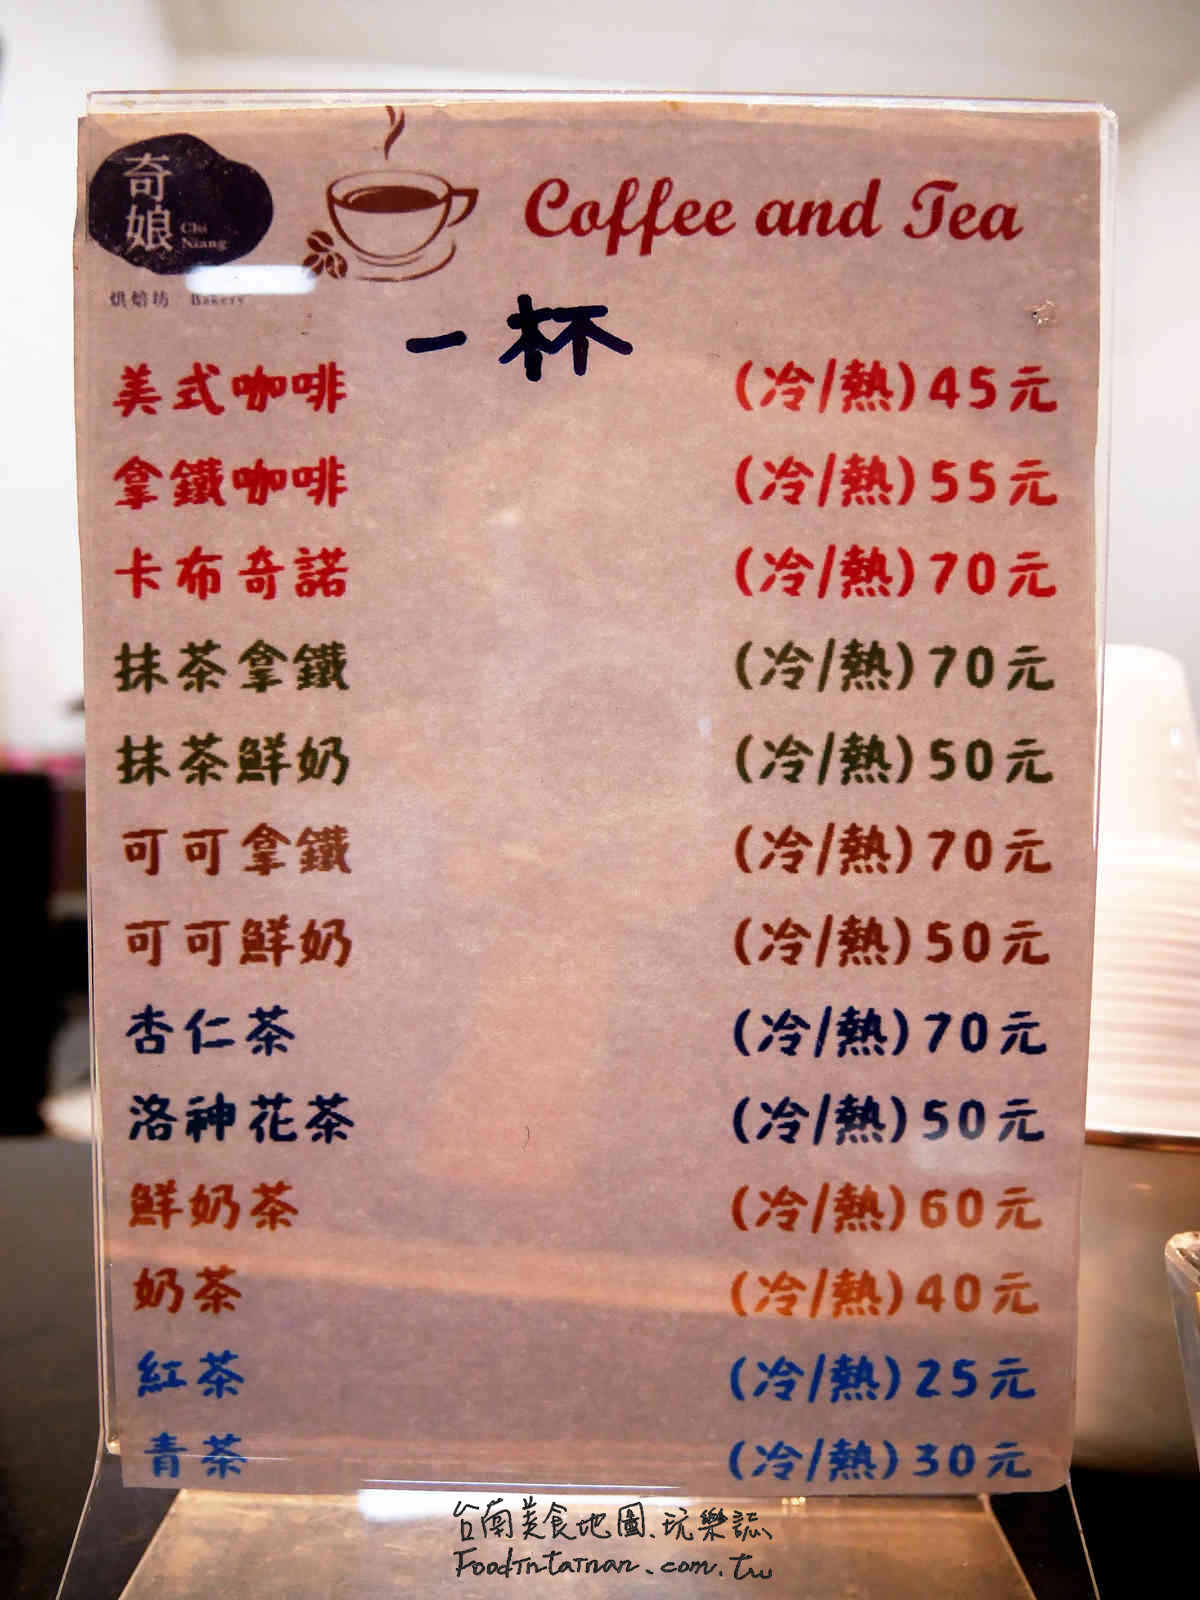 奇娘
Chi
Niang
烘焙坊 Bakery
Coffee and Tea
一杯
美式咖啡 (冷/熱) 45元
拿鐵咖啡 (冷/熱) 55元
卡布奇諾 (冷/熱) 70元
抹茶拿鐵 (冷/熱) 70元
抹茶鮮奶 (冷/熱) 50元
可可拿鐵 (冷/熱) 70元
可可鮮奶 (冷/熱) 50元
杏仁茶 (冷/熱) 70元
洛神花茶 (冷/熱) 50元
鮮奶茶 (冷/熱) 60元
奶茶 (冷/熱) 40元
紅茶 (冷/熱) 25元
青茶 (冷/熱) 30元
台南美食地圖、玩樂誌
FoodInTainan.com.tw